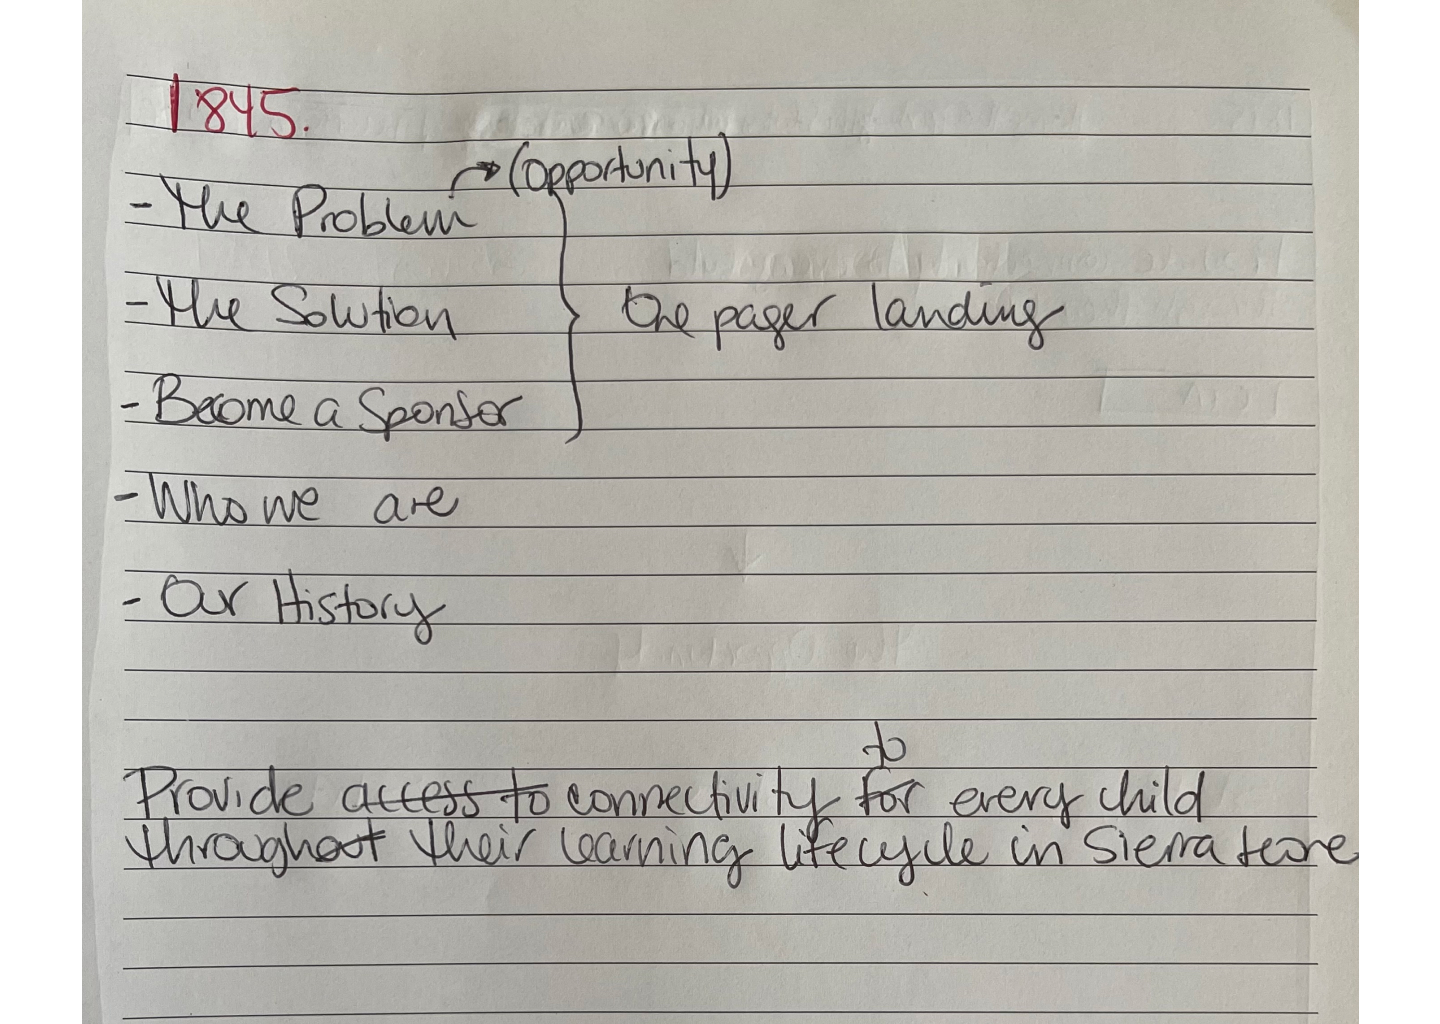 1845.
(opportunity)
- The Problem
- The Solution
One pager landing
- Become a Sponsor
- Who we are
- Our History
to
Provide access to connectivity for every child
throughout their learning lifecycle in Sierra Leone